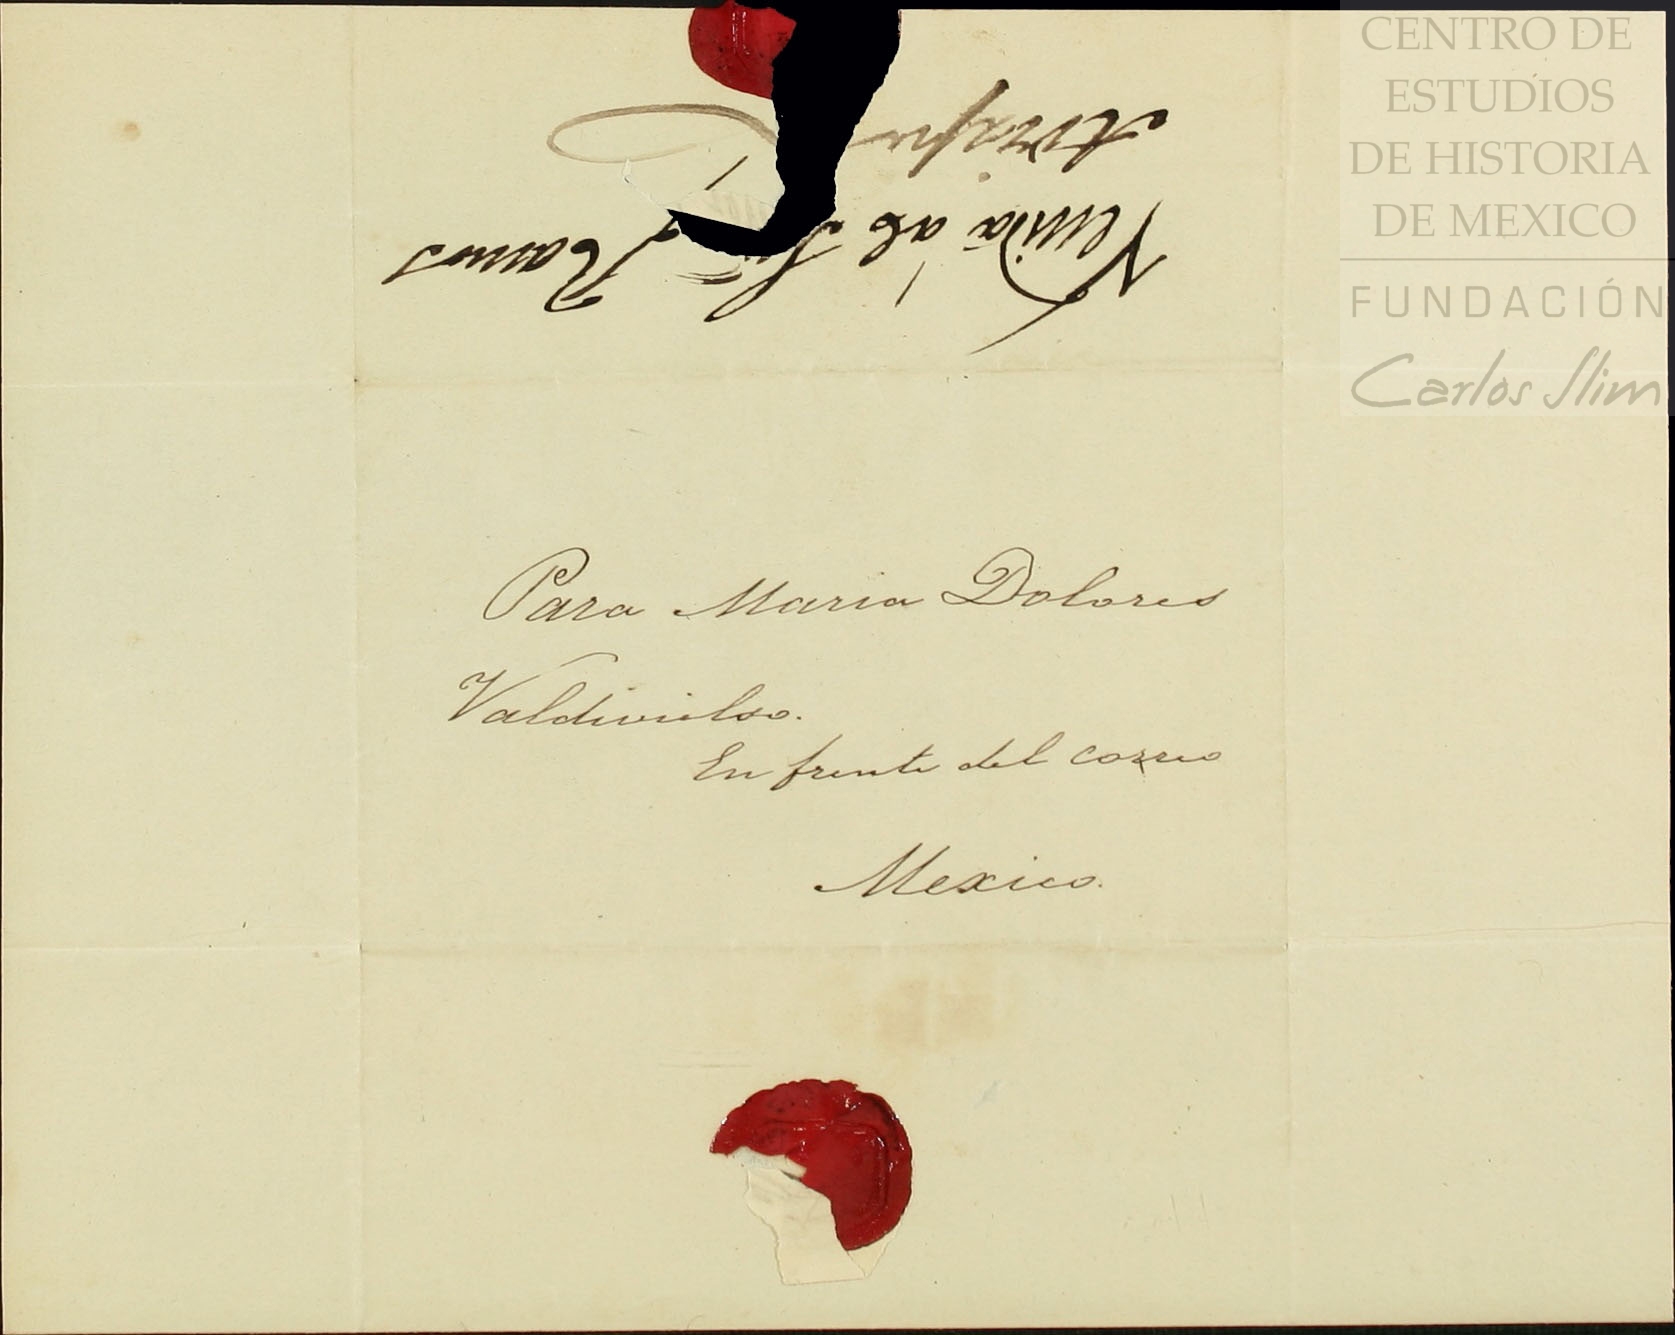 Venia al Sr. Ramos
Para Maria Dolores
Valdivielso.
En frente del correo
Mexico.
CENTRO DE
ESTUDIOS
DE HISTORIA
DE MEXICO
FUNDACIÓN
Carlos Slim